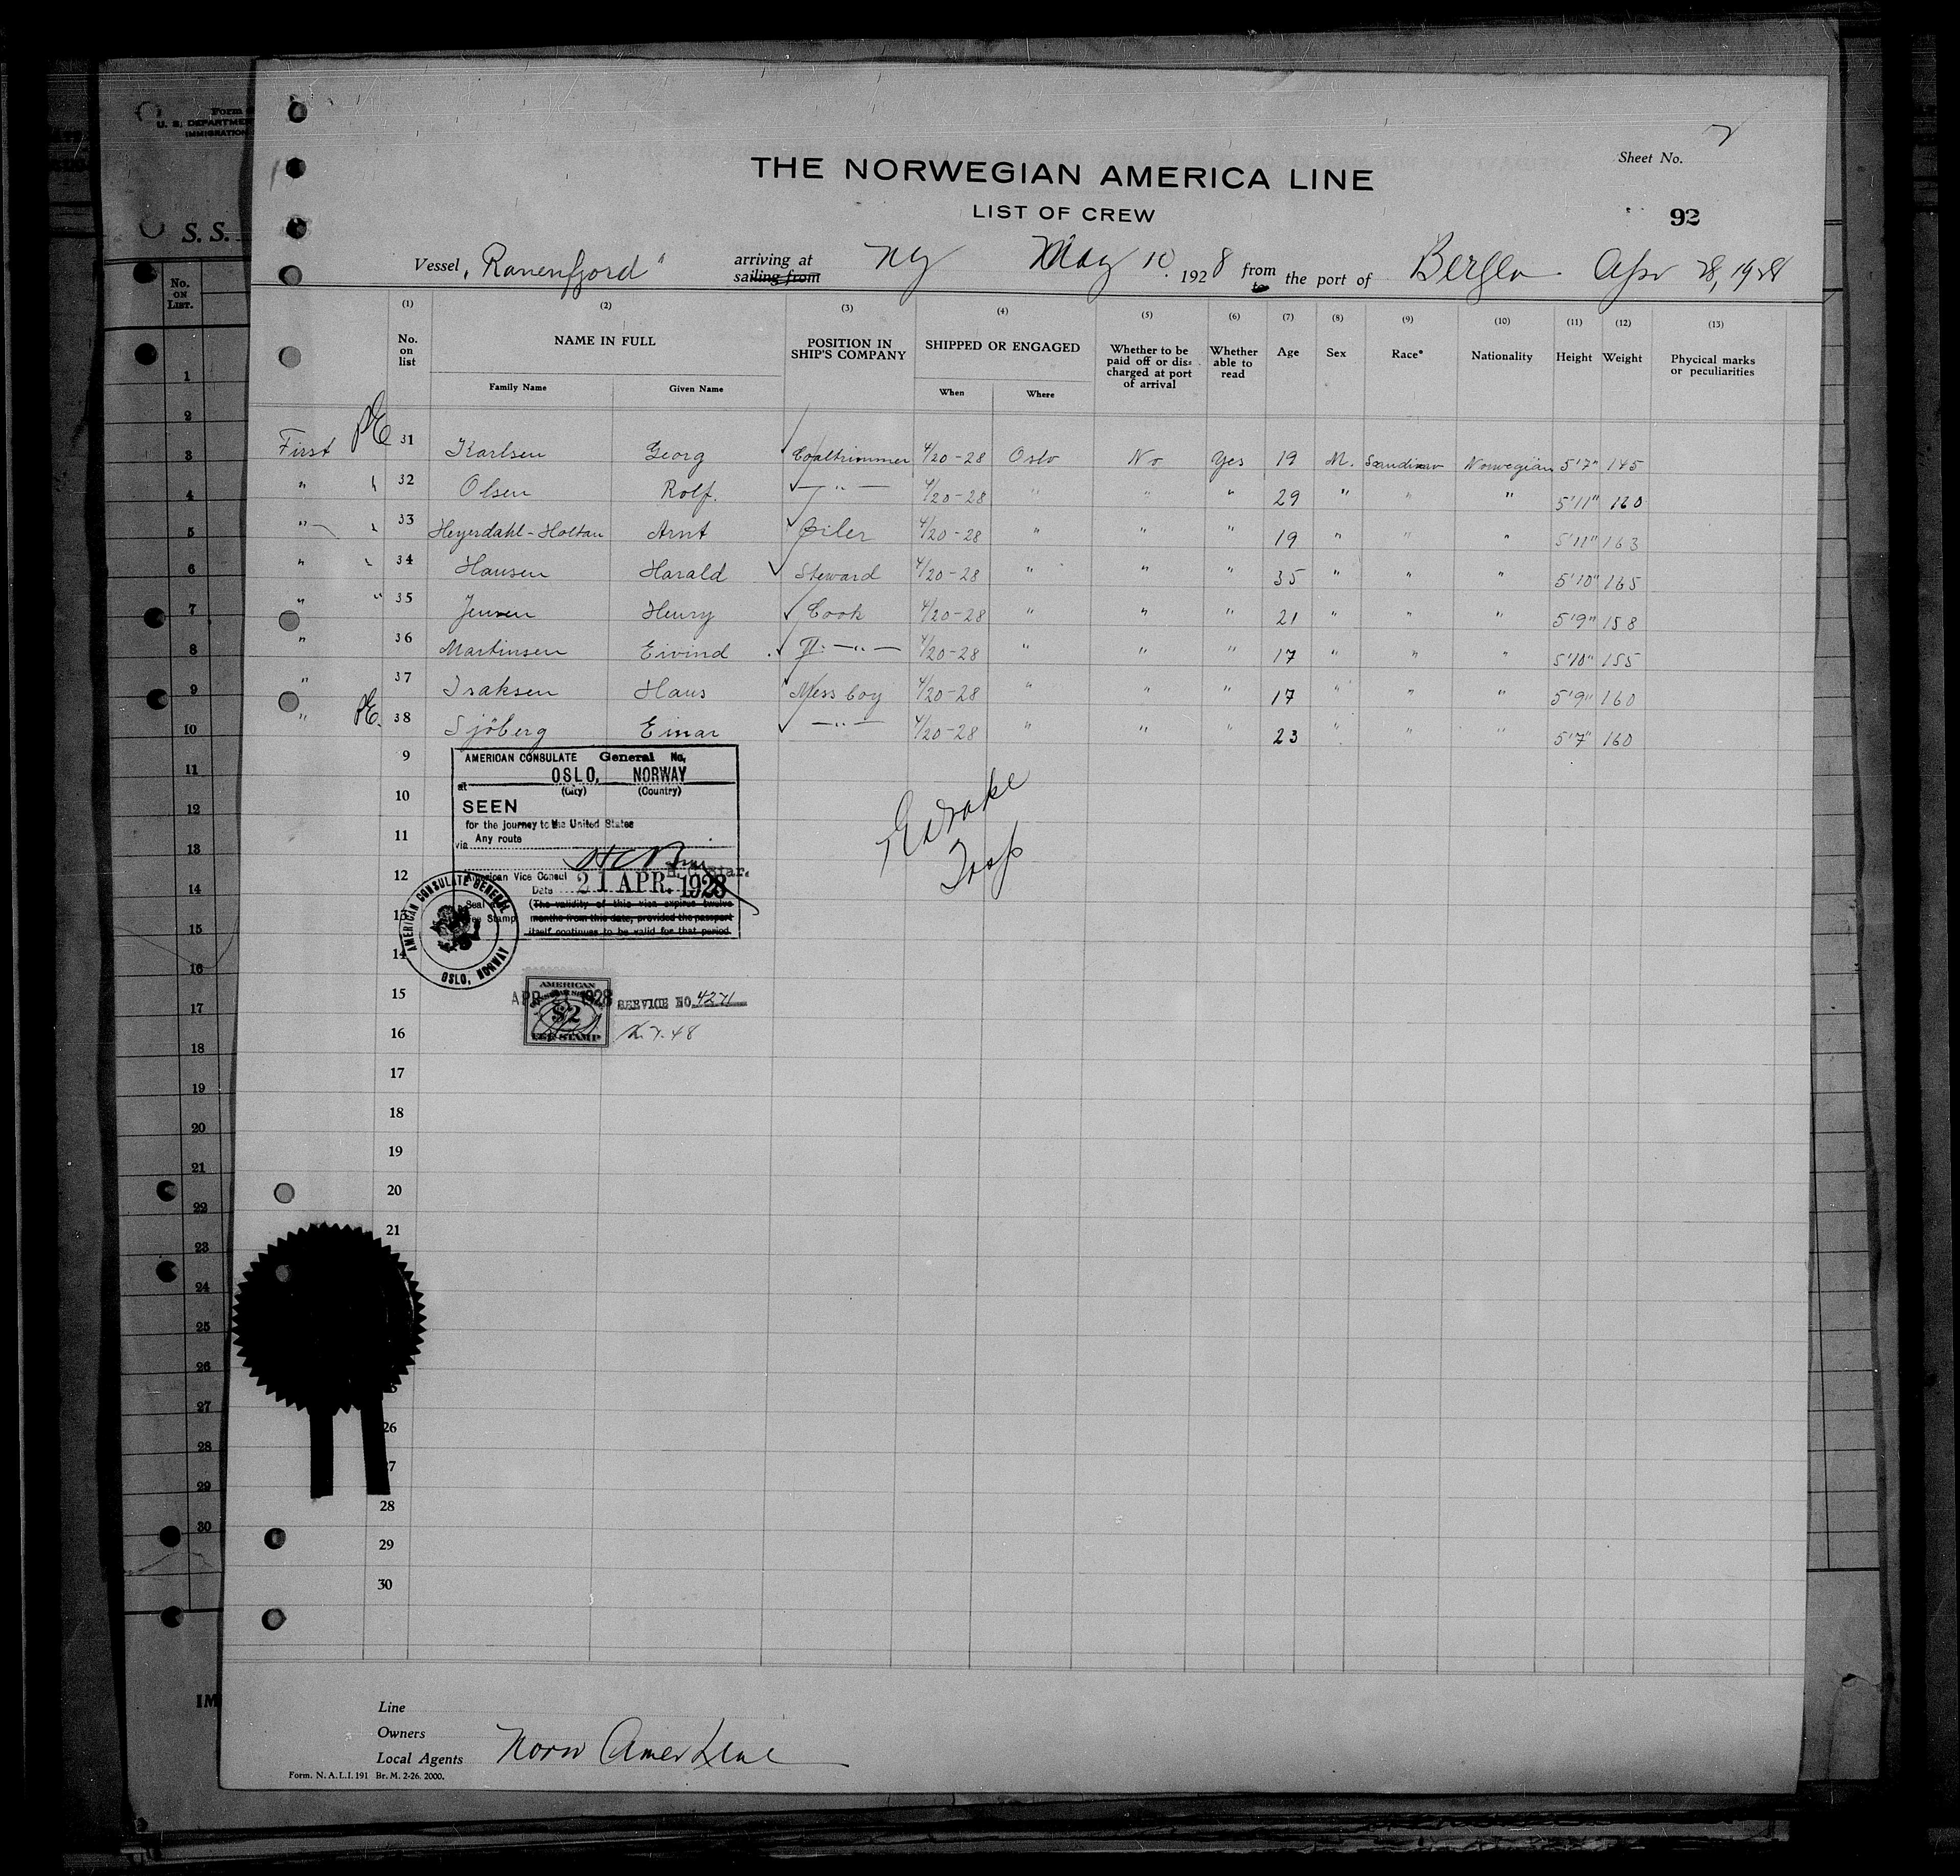 Form
U. S. DEPARTME
IMMIGRATION
S. S.
No. ON LIST.
Sheet No. 2
THE NORWEGIAN AMERICA LINE
LIST OF CREW
92
Vessel "Ranenfjord" arriving at sailing from NY May 10 1928 from to the port of Bergen Apr 28, 1928
(1) (2) (3) (4) (5) (6) (7) (8) (9) (10) (11) (12) (13)
No. on list NAME IN FULL POSITION IN SHIP'S COMPANY SHIPPED OR ENGAGED Whether to be paid off or discharged at port of arrival Whether able to read Age Sex Race* Nationality Height Weight Phycical marks or peculiarities
Family Name Given Name When Where
First 31 Karlsen Georg Coaltrimmer 4/20-28 Oslo No Yes 19 M. Scandinav Norwegian 5'7" 145
" 32 Olsen Rolf. —"— 4/20-28 " " " 29 " " " 5'11" 160
" 33 Heyerdahl-Holtan Arnt Oiler 4/20-28 " " " 19 " " " 5'11" 163
" 34 Hansen Harald Steward 4/20-28 " " " 35 " " " 5'10" 165
" " 35 Jensen Henry Cook 4/20-28 " " " 21 " " " 5'9" 158
" 36 Martinsen Eivind —"— 4/20-28 " " " 17 " " " 5'10" 155
" 37 Isaksen Hans Mess boy 4/20-28 " " " 17 " " " 5'9" 160
" 38 Sjöberg Einar —"— 4/20-28 " " " 23 " " " 5'7" 160
9
10
11
12
13
14
15
16
17
18
19
20
21
26
28
29
30
AMERICAN CONSULATE General No.
at OSLO, NORWAY
(City) (Country)
SEEN
for the journey to the United States
via Any route
American Vice Consul
Date 21 APR. 1928
Seal
Fee Stamp
(The validity of this visa expires twelve
months from this date, provided the passport
itself continues to be valid for that period
AMERICAN CONSULATE GENERAL
OSLO, NORWAY
AMERICAN
APR 1928
$2
FEE STAMP
SERVICE NO.
7.48
Drake
Insp
1
2
3
4
5
6
7
8
9
10
11
12
13
14
15
16
17
18
19
20
21
22
23
24
25
26
27
28
29
30
IM
Line
Owners
Local Agents Norw Amer Line
Form. N. A. L. I. 191 Br. M. 2-26. 2000.